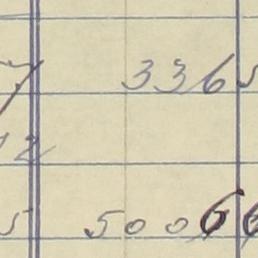 7 3365
12
5 50066